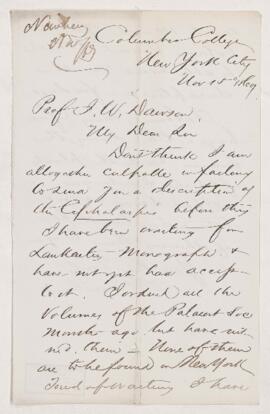 Newberry
Nov
Columbia College
New York City
Nov 15th 1869
Prof J. W. Dawson,
My Dear Sir
Don't think I am
altogether culpable in failing
to send you a description of
the Cephalaspis before this
I have been waiting for
Lankester's Monograph &
have not yet had access
to it. I ordered all the
Volumes of the Palaeont Soc
months ago but have not
rec'd them - None of them
are to be found in New York
Tired of waiting I have